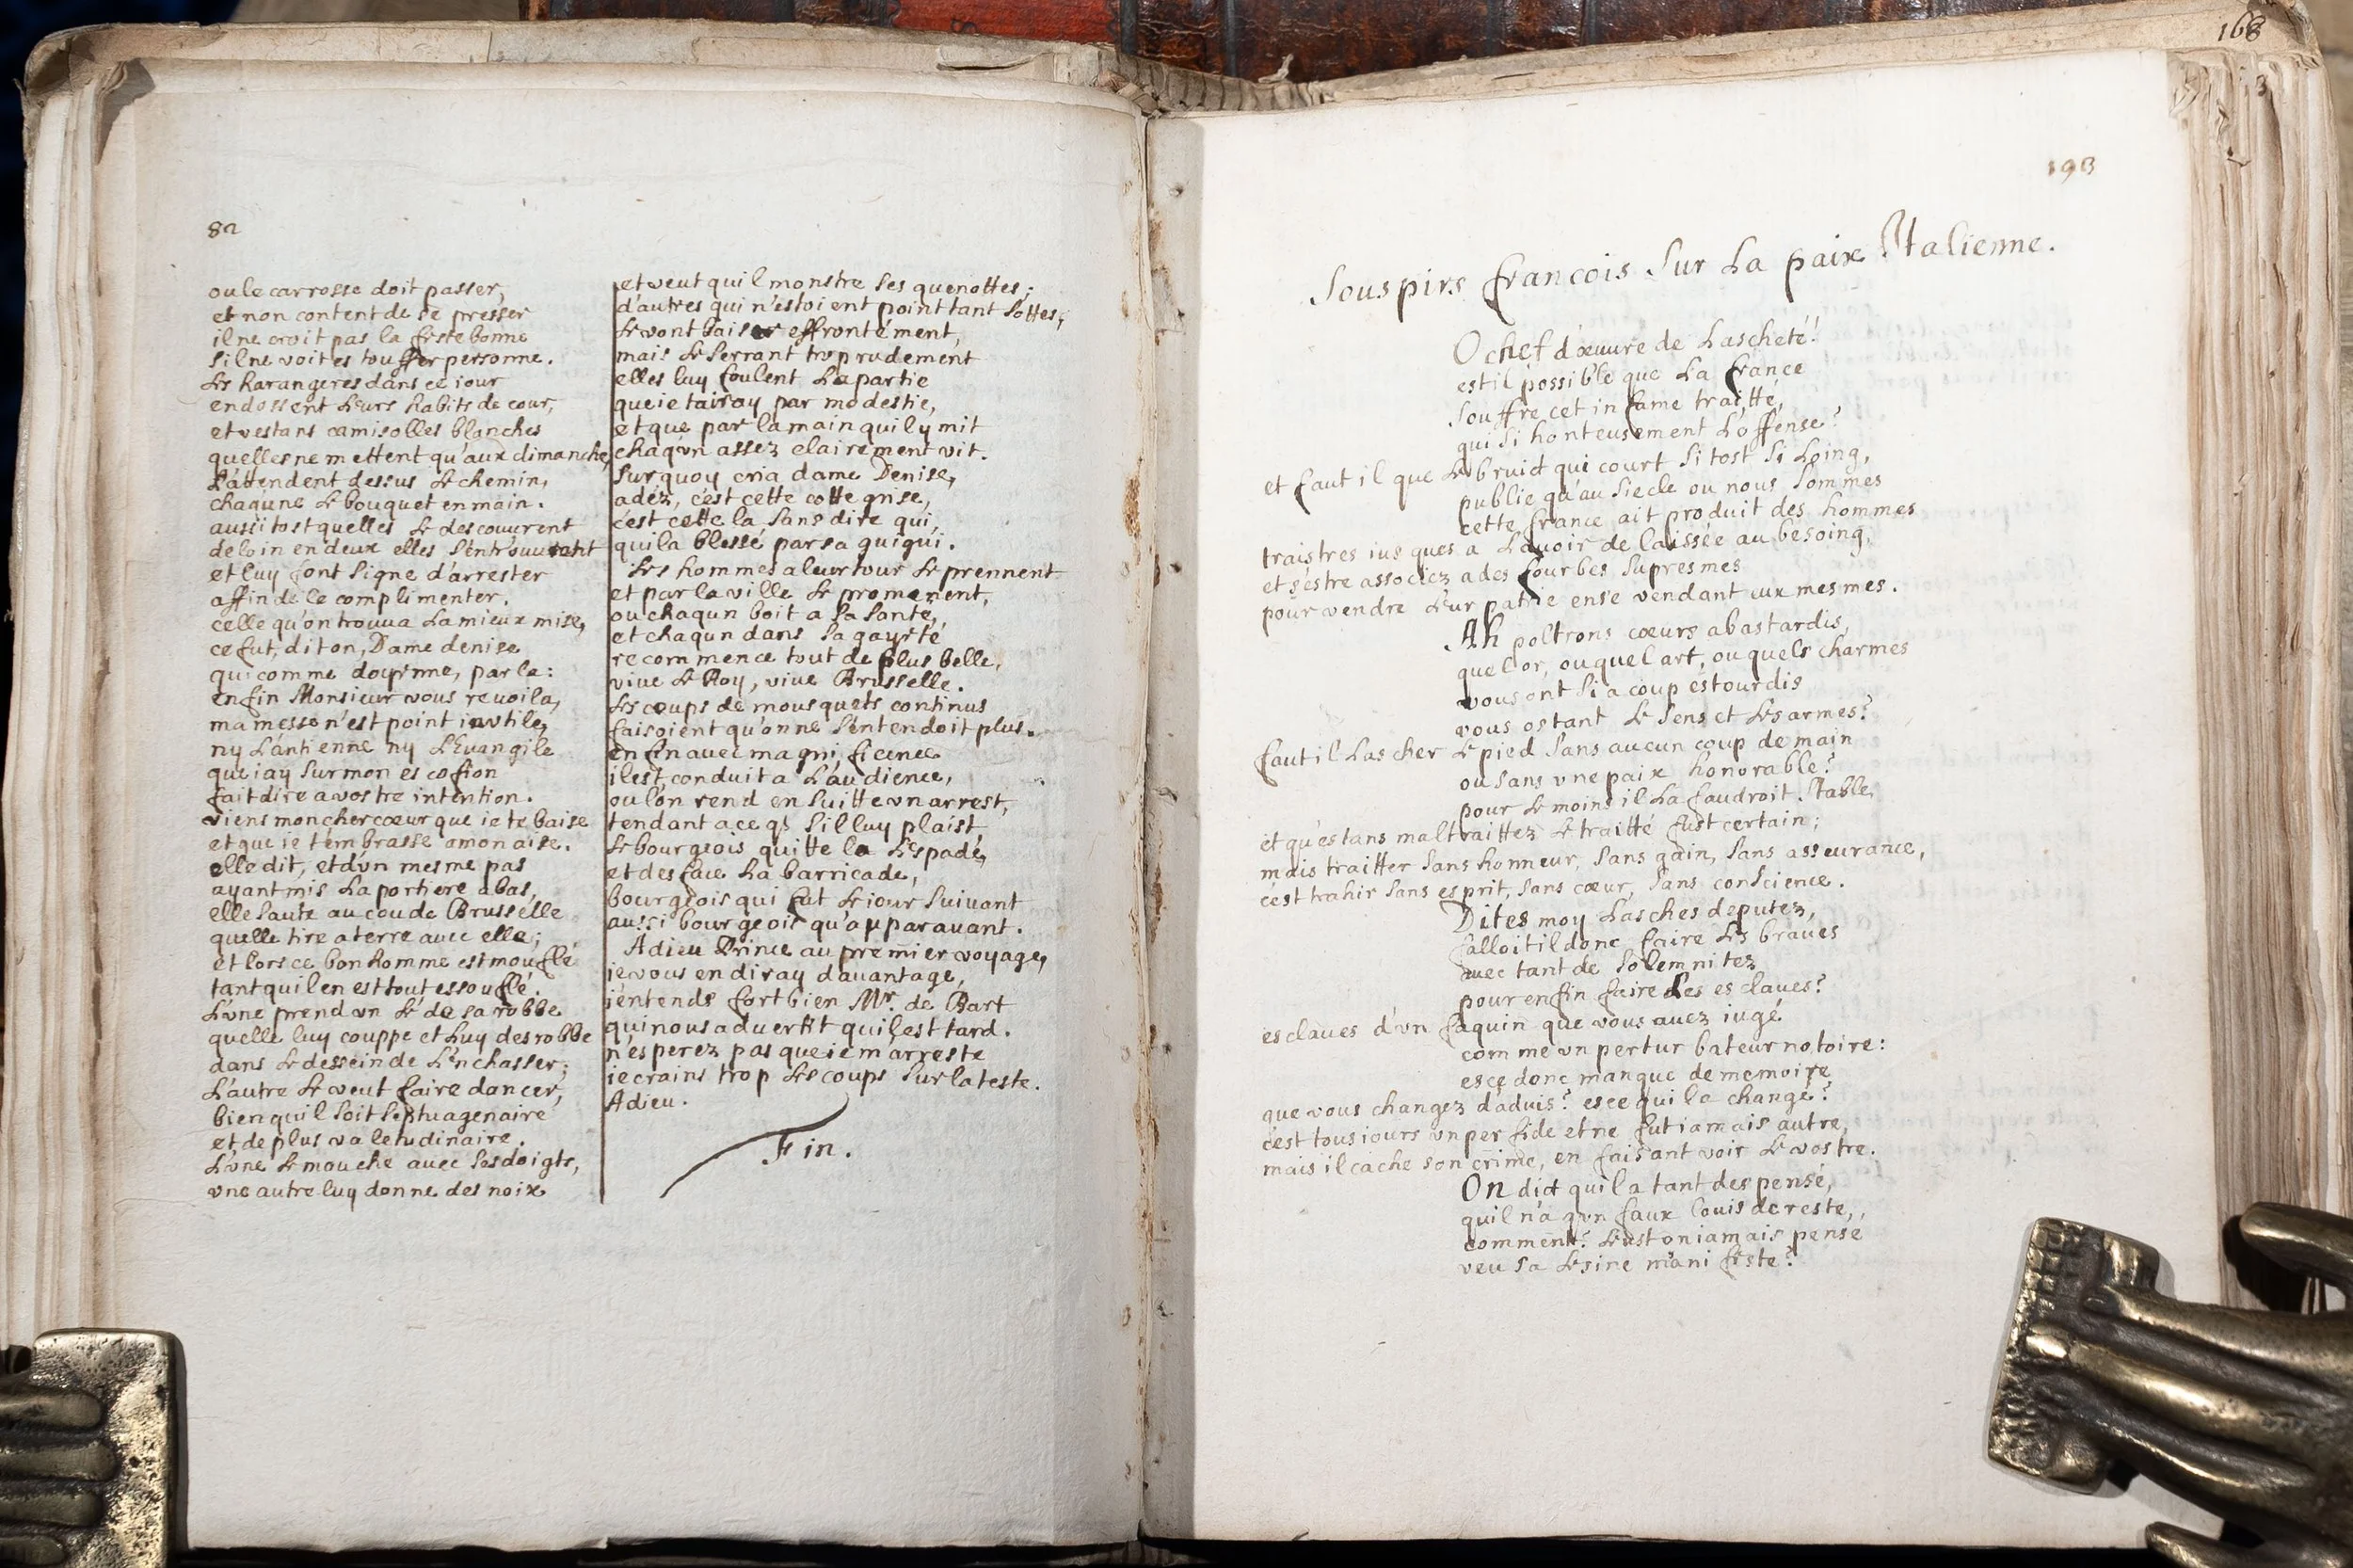 82
ou le carrosse doit passer,
et non content de se presser
il ne croit pas la feste bonne
s'il ne voit estouffer personne.
Les harangeres dans ce iour
endossent leurs habits de cour,
et vestans camisolles blanches
quelles ne mettent qu'aux dimanche,
l'attendent dessus le chemin,
chaqune le bouquet en main.
aussi tost quelles le descouurent
de loin en deux elles s'entrouurant
et luy font signe d'arrester
affin de le complimenter.
celle qu'on trouua la mieux mise,
ce fut, dit on, Dame denise
qui comme doyenne, parla:
enfin Monsieur vous reuoila,
ma messe n'est point inutile,
ny l'antienne ny l'Euangile
que iay sur mon escofion
fait dire a vostre intention.
viens mon cher cœur que ie te baise
et que ie t'embrasse a mon aise.
elle dit, et d'vn mesme pas
ayant mis la portiere a bas,
elle saute au cou de Brusselle
quelle tire a terre auec elle;
et lors ce bon homme est mouflé
tant quil en est tout essouflé.
L'vne prend vn lé de sa robbe
quelle luy couppe et luy desrobbe
dans le dessein de l'enchasser;
L'autre le veut faire dancer,
bien quil soit septuagenaire
et de plus valetudinaire.
L'vne le mouche auec ses doigts,
vne autre luy donne des noix
et veut quil monstre ses quenottes;
d'autres qui n'estoient point tant sottes,
le vont baiser effrontément,
mais le serrant trop rudement
elles luy foulent la partie
que ie tairay par modestie,
et que par la main quil y mit
chaqvn assez clairement vit.
Sur quoy cria dame Denise,
adez, c'est cette cotte grise,
c'est cette la sans dire qui,
qui la blessé par sa guigui.
Les hommes a leur tour le prennent
et par la ville le promenent,
ou chaqun boit a sa santé,
et chaqun dans sa gayeté
recommence tout de plus belle,
viue le Roy, viue Brusselle.
Les coups de mousquets continus
faisoient qu'on ne s'entendoit plus.
en fin auec magnificence
il est conduit a l'audience,
ou l'on rend en suitte vn arrest,
tendant a ce qs s'il luy plaist,
le bourgeois quitte la l'espade,
et desface la barricade,
bourgeois qui fut le iour suiuant
aussi bourgeois qu'apparauant.
Adieu Prince au premier voyage,
ie vous en diray dauantage,
i'entends fort bien Mr. de Bart
qui nous aduertit quil est tard.
n'esperez pas que ie m'arreste
ie crains trop les coups sur la teste.
Adieu.
Fin.
168
193
Souspirs francois sur la paix Italienne.
O chef d'œuure de Lascheté!
est il possible que la france
souffre cet infame traitté,
qui si honteusement l'offense?
et faut il que le bruict qui court si tost si loing,
publie qu'au siecle ou nous sommes
cette france ait produit des hommes
traistres iusques a l'auoir delaissée au besoing,
et s'estre associez a des fourbes supresmes
pour vendre leur patrie en se vendant eux mesmes.
Ah poltrons cœurs abastardis,
quel or, ou quel art, ou quels charmes
vous ont si a coup estourdis
vous ostant le sens et les armes?
faut il lascher le pied sans aucun coup de main
ou sans vne paix honorable?
pour le moins il la faudroit stable,
et qu'estans maltraittez le traitté fust certain;
mais traitter sans honneur, sans gain, sans asseurance,
c'est trahir sans esprit, sans cœur, sans conscience.
Dites moy lasches deputez,
falloit il donc faire les braues
auec tant de solemnitez
pour enfin faire des esclaues?
esclaues d'vn faquin que vous auez iugé
comme vn perturbateur notoire:
esce donc manque de memoire
que vous changez d'aduis? esce qui la changé?
c'est tousiours vn perfide et ne fut iamais autre,
mais il cache son crime, en faisant voir le vostre.
On dict quil a tant despensé,
quil n'a qvn faux louis de reste,
comment? l'eust on iamais pensé
veu sa lesine manifeste?